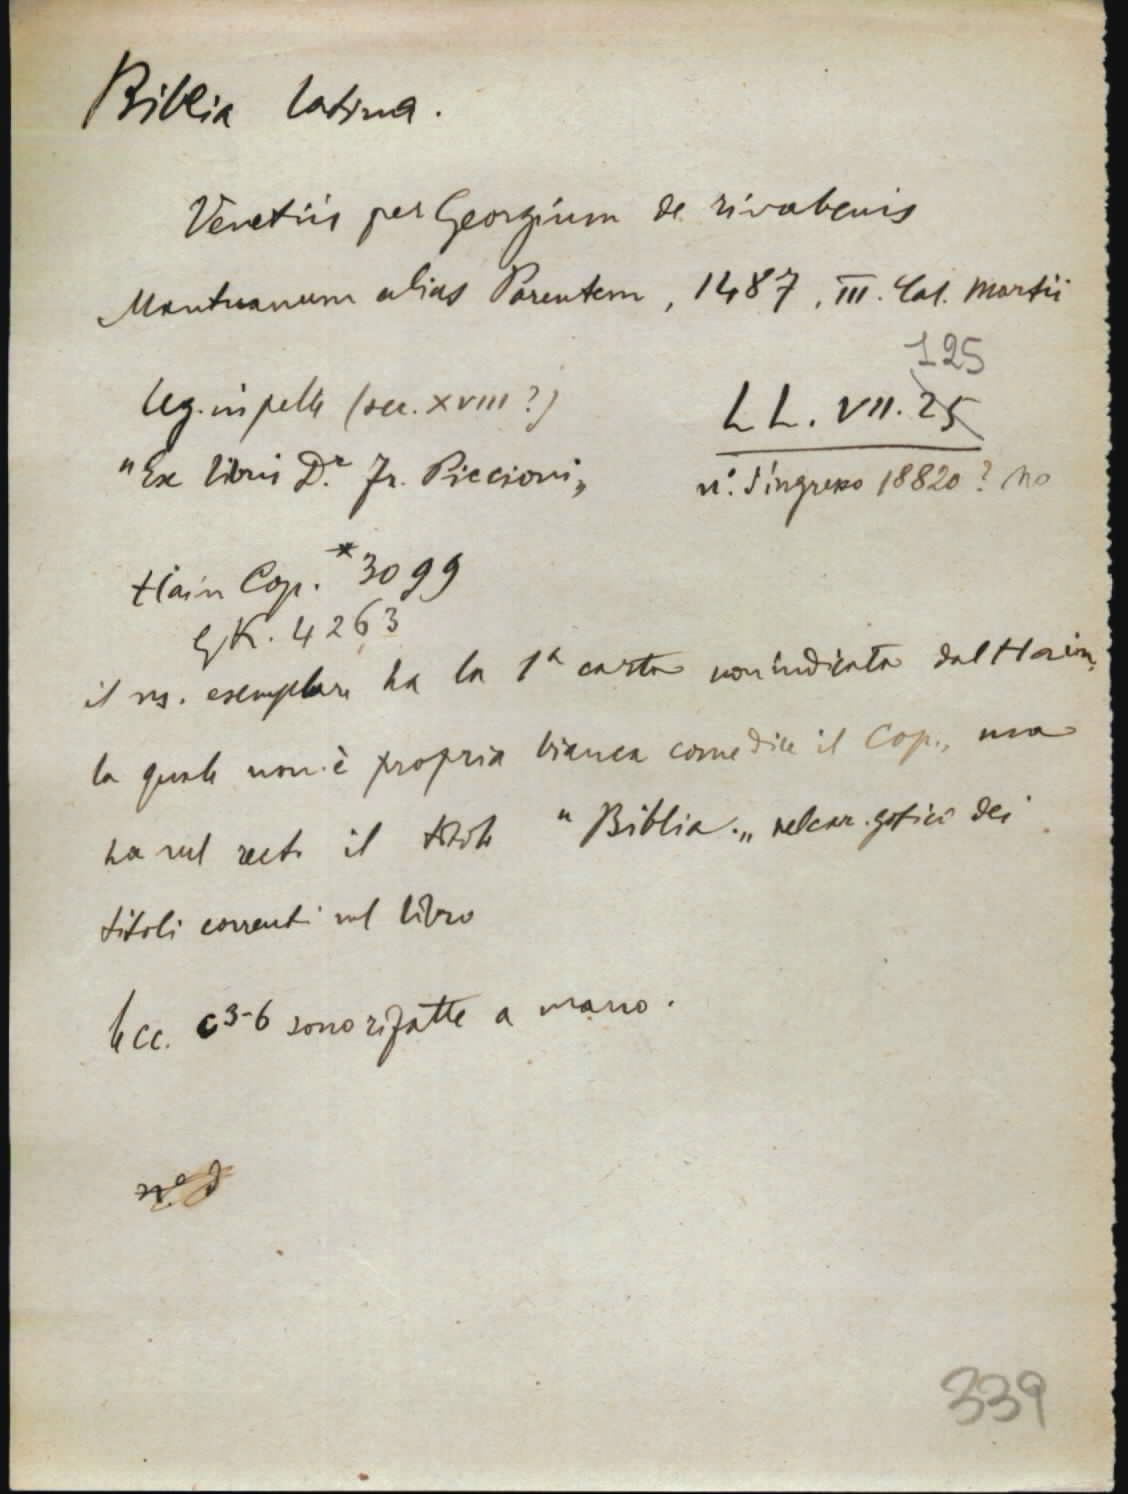 Biblia latina.
Venetiis per Georgium de rivabenis
Mantuanum alias Parentem, 1487, III. Cal. Martii
125
leg. in pelle (sec. XVIII?)
LL. VII. 25
"Ex libris D.r Fr. Piccioni"
n.° d'ingresso 18820? no
Hain Cop. *3099
GK. 4263
il ns. esemplare ha la 1a carta non indicata dal Hain,
la quale non è propria bianca come dice il Cop., ma
ha sul recto il titolo "Biblia." nel car. gotici dei
titoli correnti sul libro
le cc. c3-6 sono rifatte a mano.
n.°
339